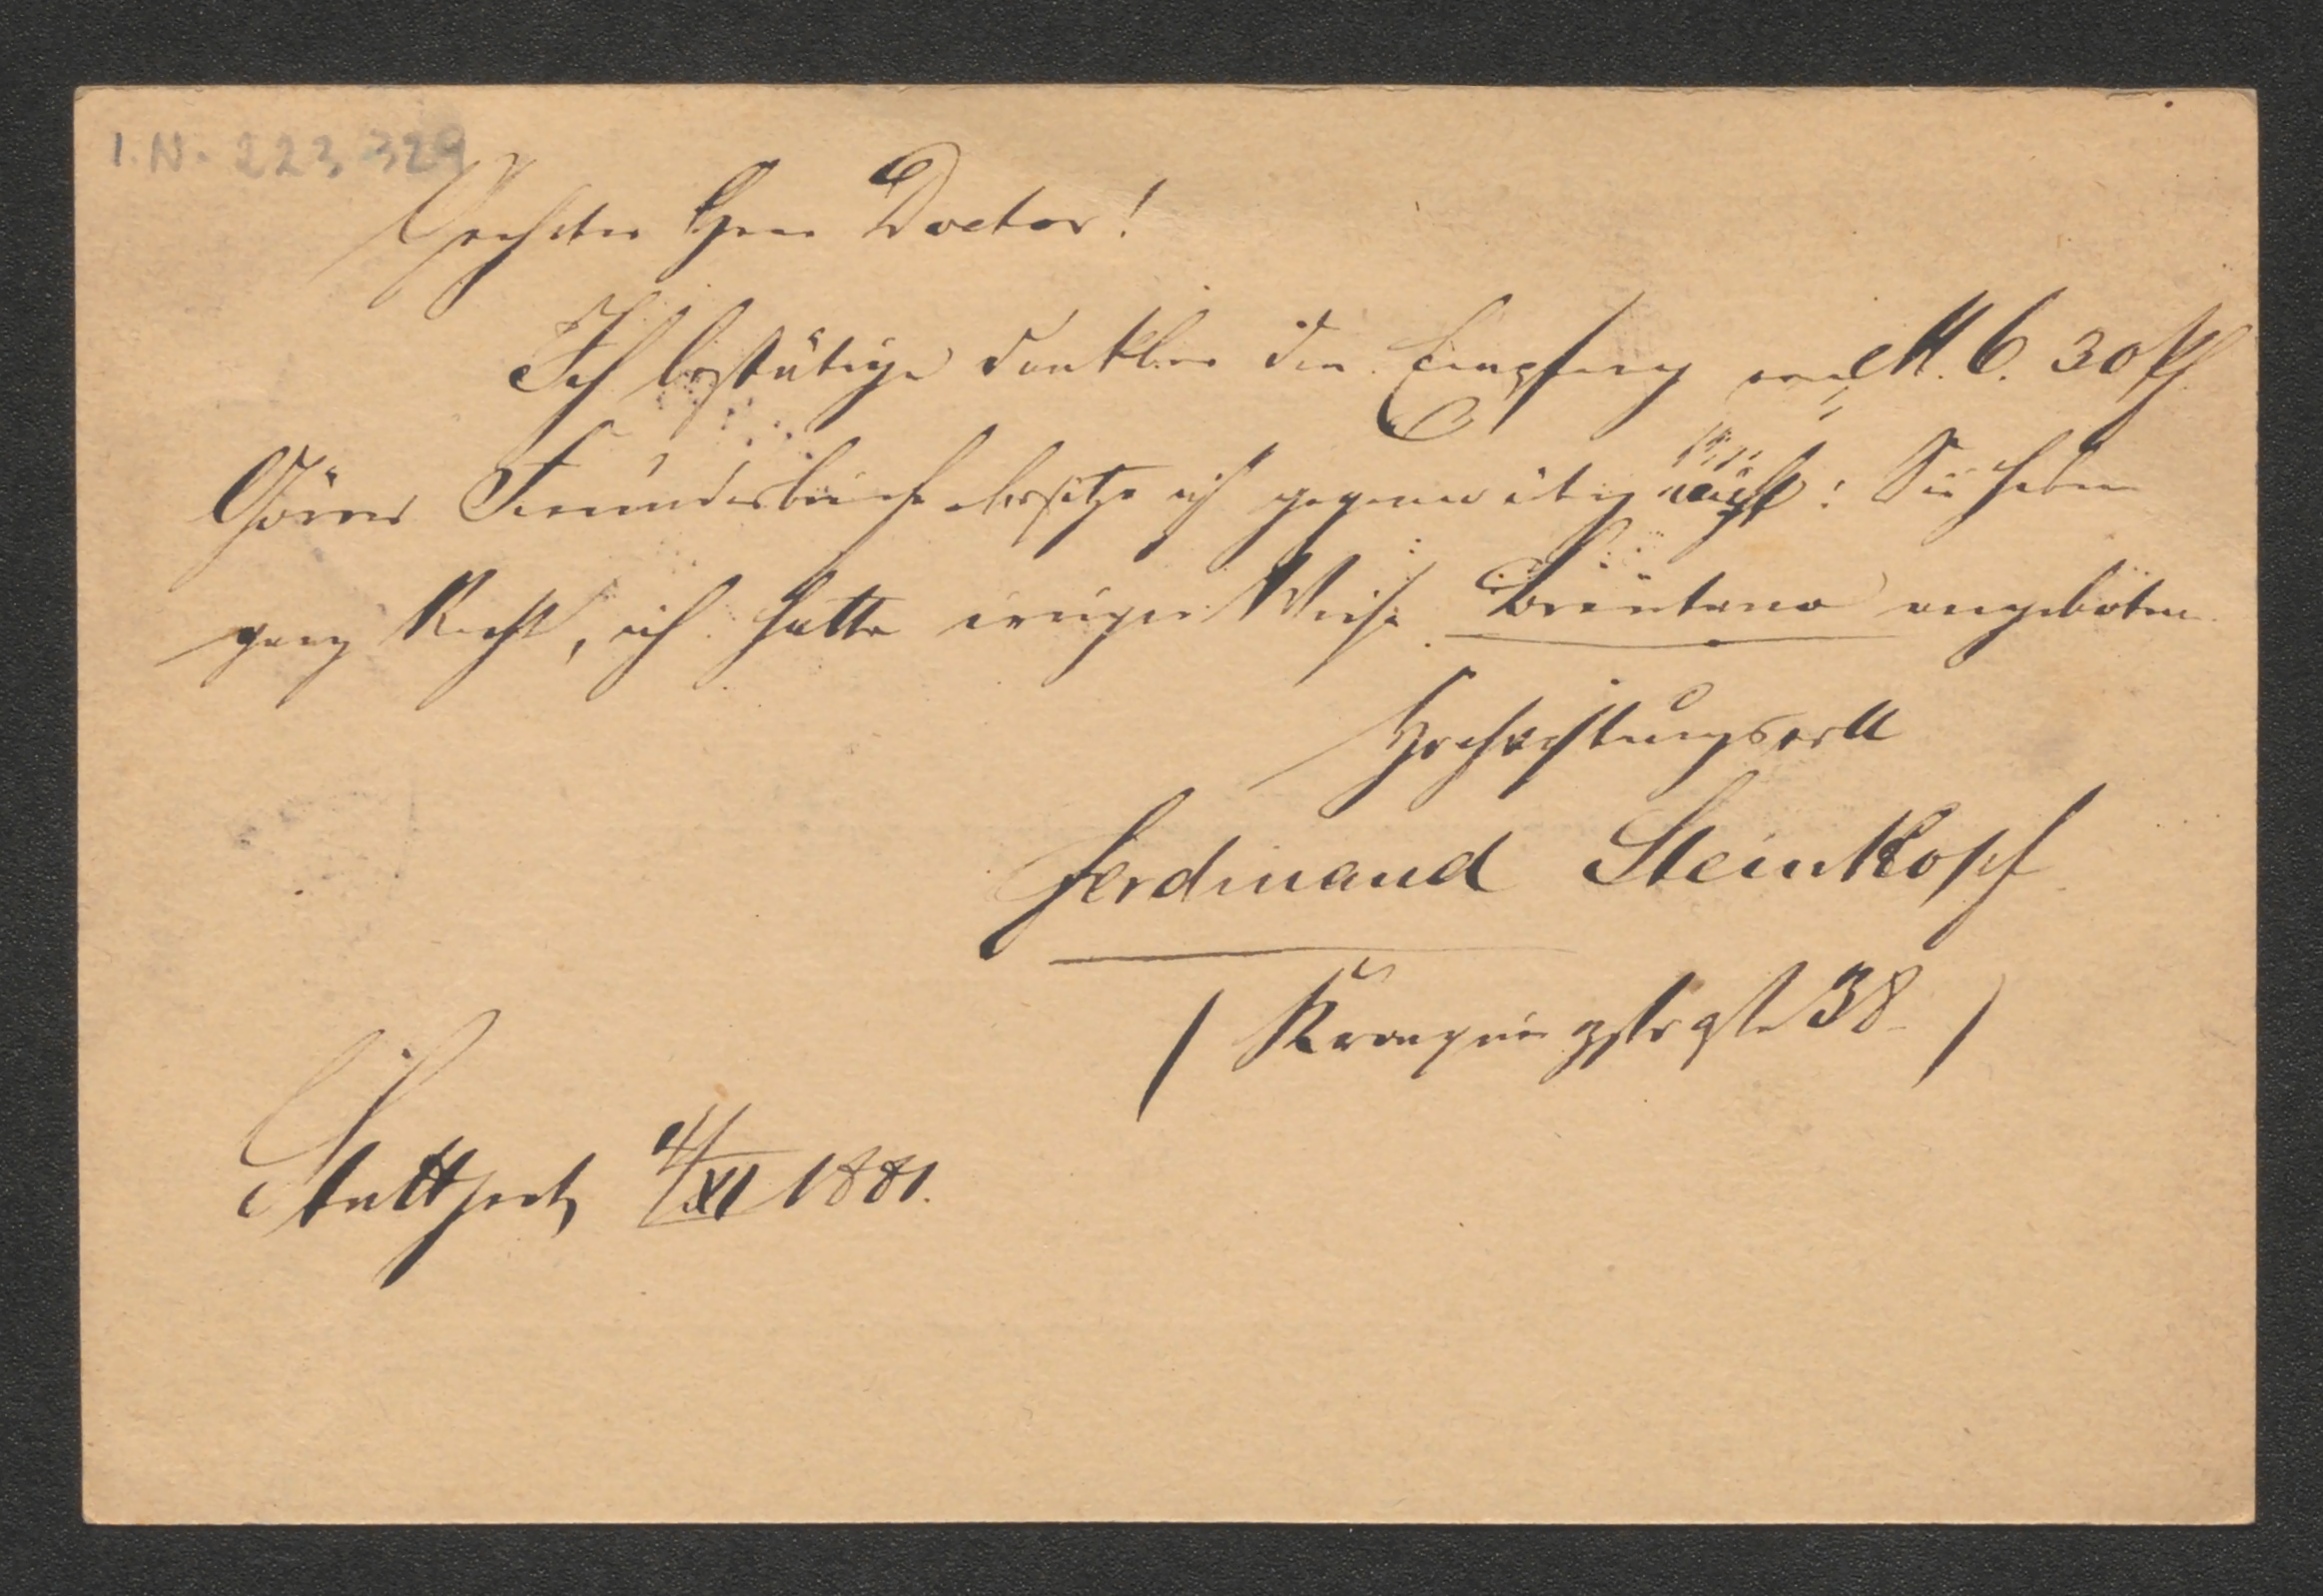 I.N. 223.329
Geehrter Herr Doctor!
Ich bestätige dankbar den Empfang von M. 6. 30 Pf.
Görres Freundesbriefe besitze ich gegenwärtig nicht: Sie haben
ganz Recht, ich hatte irriger Weise Brentano angeboten.
Hochachtungsvoll
Ferdinand Steinkopf
(Kronprinzstraße 38)
Stuttgart 4/XI 1881.